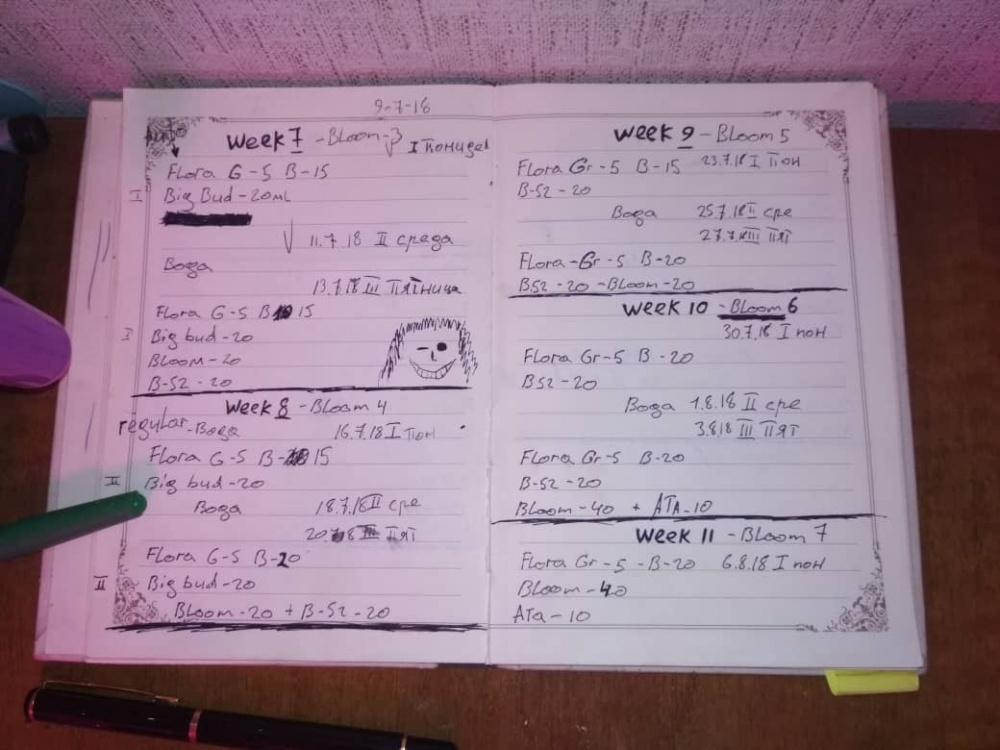 9-7-18
Week 7 - Bloom-3
I
Flora G - 5 B - 15
I Big Bud - 20ml
11.7.18 II среда
Вода
13.7.18 III Пятница
Flora G - 5 B 15
Big bud - 20
Bloom - 20
B-52 - 20
Week 8 - Bloom 4
regular - Вода 16.7.18 I пон
Flora G - 5 B - 15
II Big bud - 20
Вода 18.7.18 II сре
III пят
Flora G - 5 B - 20
II Big bud - 20
Bloom - 20 + B-52 - 20
Week 9 - Bloom 5
Flora Gr - 5 B - 15 23.7.18 I пон
B-52 - 20
Вода 25.7.18 II сре
27.7.18 III пят
Flora - Gr - 5 B - 20
B52 - 20 - Bloom - 20
Week 10 - Bloom 6
30.7.18 I пон
Flora Gr - 5 B - 20
B52 - 20
Вода 1.8.18 II сре
3.8.18 III пят
Flora Gr - 5 B - 20
B-52 - 20
Bloom - 40 + ATA - 10
Week 11 - Bloom 7
Flora Gr - 5 - B - 20 6.8.18 I пон
Bloom - 40
ATa - 10